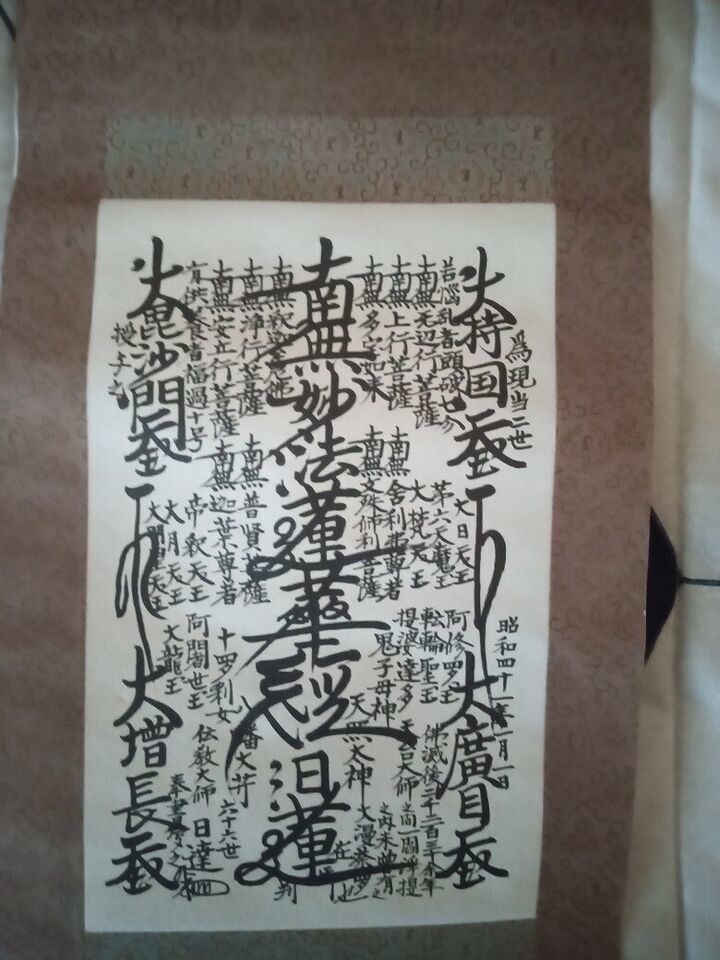 爲現当二世
大持国天王
大廣目天王
昭和四十一年一月一日
若悩乱者頭破七分
南無无辺行菩薩
南無上行菩薩
南無多宝如来
大日天王
第六天魔王
大梵天王
南無舎利弗尊者
南無文殊師利菩薩
阿修羅王
転輪聖王
提婆達多
鬼子母神
天照太神
天台大師
佛滅後二千二百三十余年
之間一閻浮提
之内未曽有之
大漫荼羅也
南無妙法蓮華経
日蓮
在
判
南無釈迦牟尼佛
南無浄行菩薩
南無安立行菩薩
有供養者福過十号
南無普賢菩薩
南無迦葉尊者
帝釈天王
大月天王
大明星天王
十羅刹女
阿闍世王
大龍王
八幡大菩薩
伝教大師
大毘沙門天王
大増長天王
授与之
六十六世
日達
奉書寫之